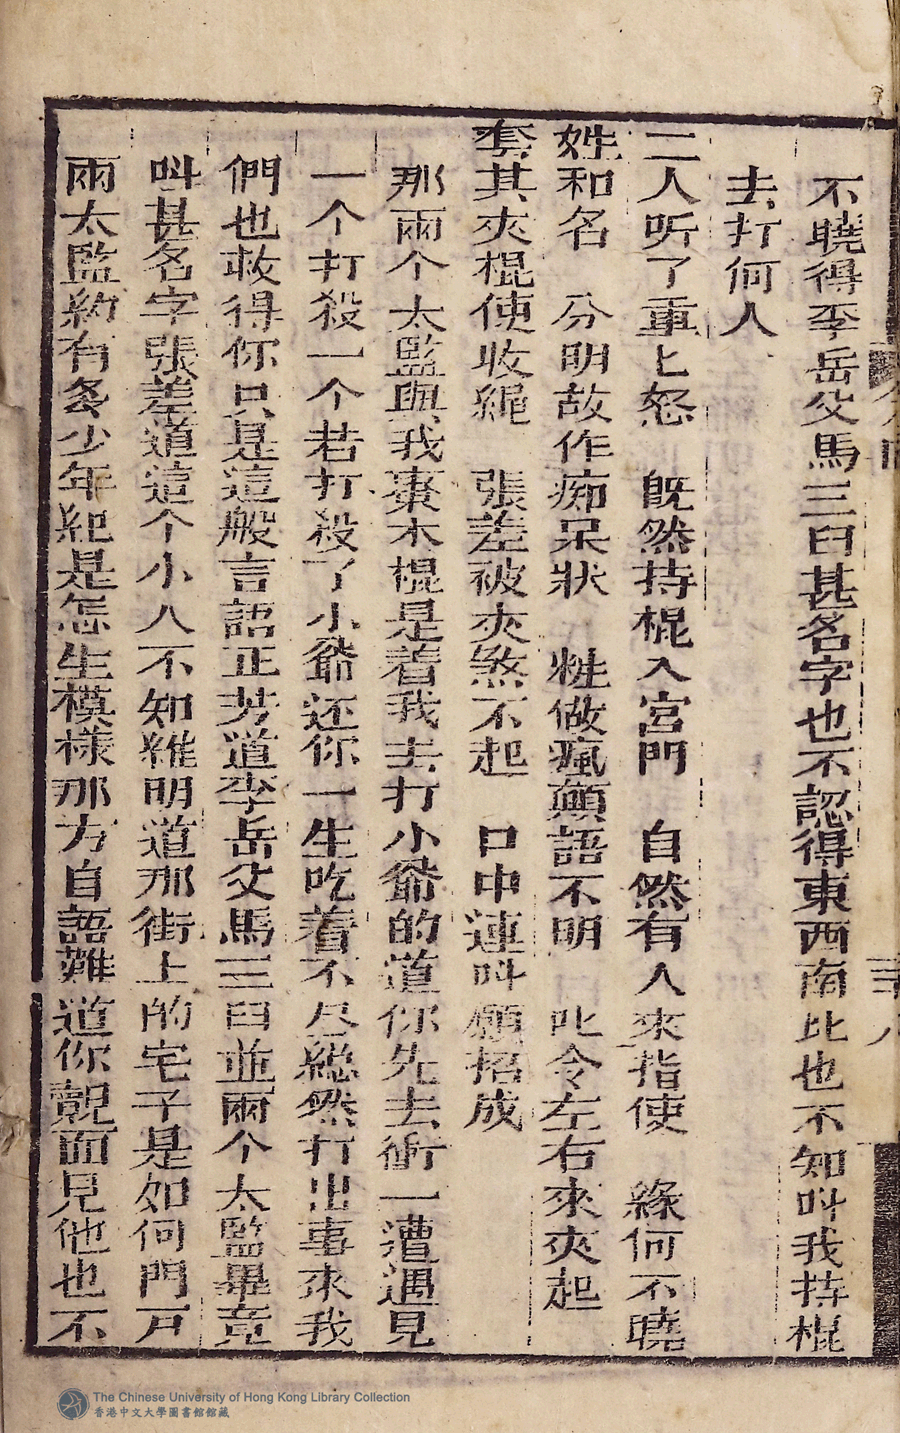 不曉得李岳父馬三曰甚名字也不認得東西南北也不知叫我持棍
去打何人
二人听了重〻怒　既然持棍入宮門　自然有人來指使　緣何不曉
姓和名　分明故作痴呆狀　粧做瘋顛語不明　叱令左右來夾起
套其夾棍使收繩　張差被夾煞不起　口中連叫願招成
那兩个太監與我棗木棍是着我去打小爺的道你先去衝一遭遇見
一个打殺一个若打殺了小爺还你一生吃着不尽縂然打出事來我
們也救得你只是這般言語正芳道李岳父馬三曰並兩个太監畢竟
叫甚名字張差道這个小人不知維明道那街上的宅子是如何門戶
兩太監約有多少年紀是怎生模樣那方自語難道你覿面見他也不
The Chinese University of Hong Kong Library Collection
香港中文大學圖書館館藏